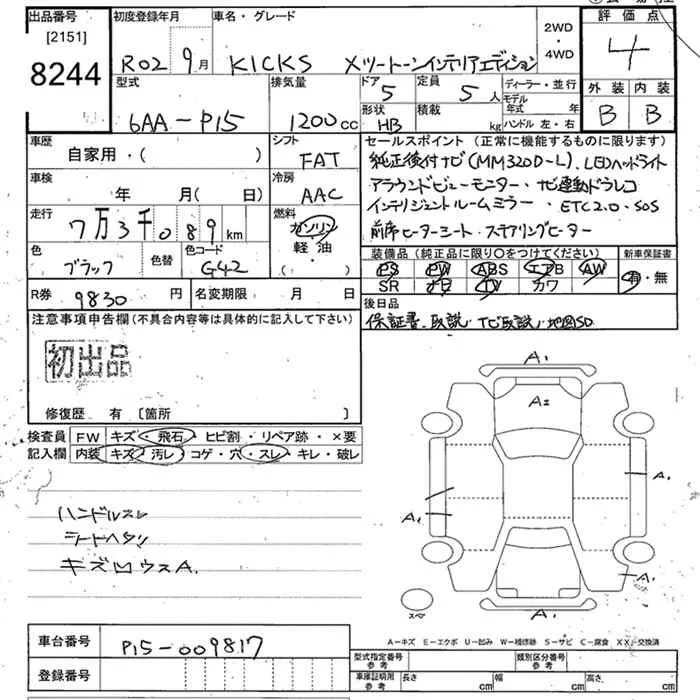 出品番号
[2151]
8244
初度登録年月
車名・グレード
2WD
・
4WD
評価点
R02 9月
KICKS Xツートーンインテリアエディション
4
型式
排気量
ドア
5
定員
5人
ディーラー・並行
モデル年式 年
ハンドル 左・右
外装
内装
6AA-P15
1200cc
形状
HB
積載
kg
B
B
車歴
自家用・( )
シフト
FAT
セールスポイント (正常に機能するものに限ります)
純正後付ナビ(MM320D-L)、LEDヘッドライト
アラウンドビューモニター・ナビ連動ドラレコ
インテリジェントルームミラー・ETC2.0・SOS
前席ヒーターシート・ステアリングヒーター
車検
年 月( 日)
冷房
AAC
走行
7万3千089km
燃料
ガソリン
軽・油
・( )
色
ブラック
色替
色コード
G42
装備品 (純正品に限り○をつけてください)
新車保証書
PS PW ABS エアB AW
SR ナビ TV カワ
有・無
R券
9830円
名変期限 月 日
後日品
保証書、取説、ナビ取説、地図SD
注意事項申告欄(不具合内容等は具体的に記入して下さい)
初出品
修復歴 有 〔箇所 〕
検査員
記入欄
FW キズ・飛石・ヒビ割・リペア跡・×要
内装 キズ・汚レ・コゲ・穴・スレ・キレ・破レ
ハンドルスレ
シートヘタリ
キズロウスA.
A1
A2
A1
A1
A1
A1
スペア
A-キズ E-エクボ U-凹み W-補修跡 S-サビ C-腐食 XX-交換済
車台番号
P15-009817
登録番号
型式指定番号
参考
類別区分番号
参考
車庫証明用
参考
長さ cm
幅 cm
高さ cm